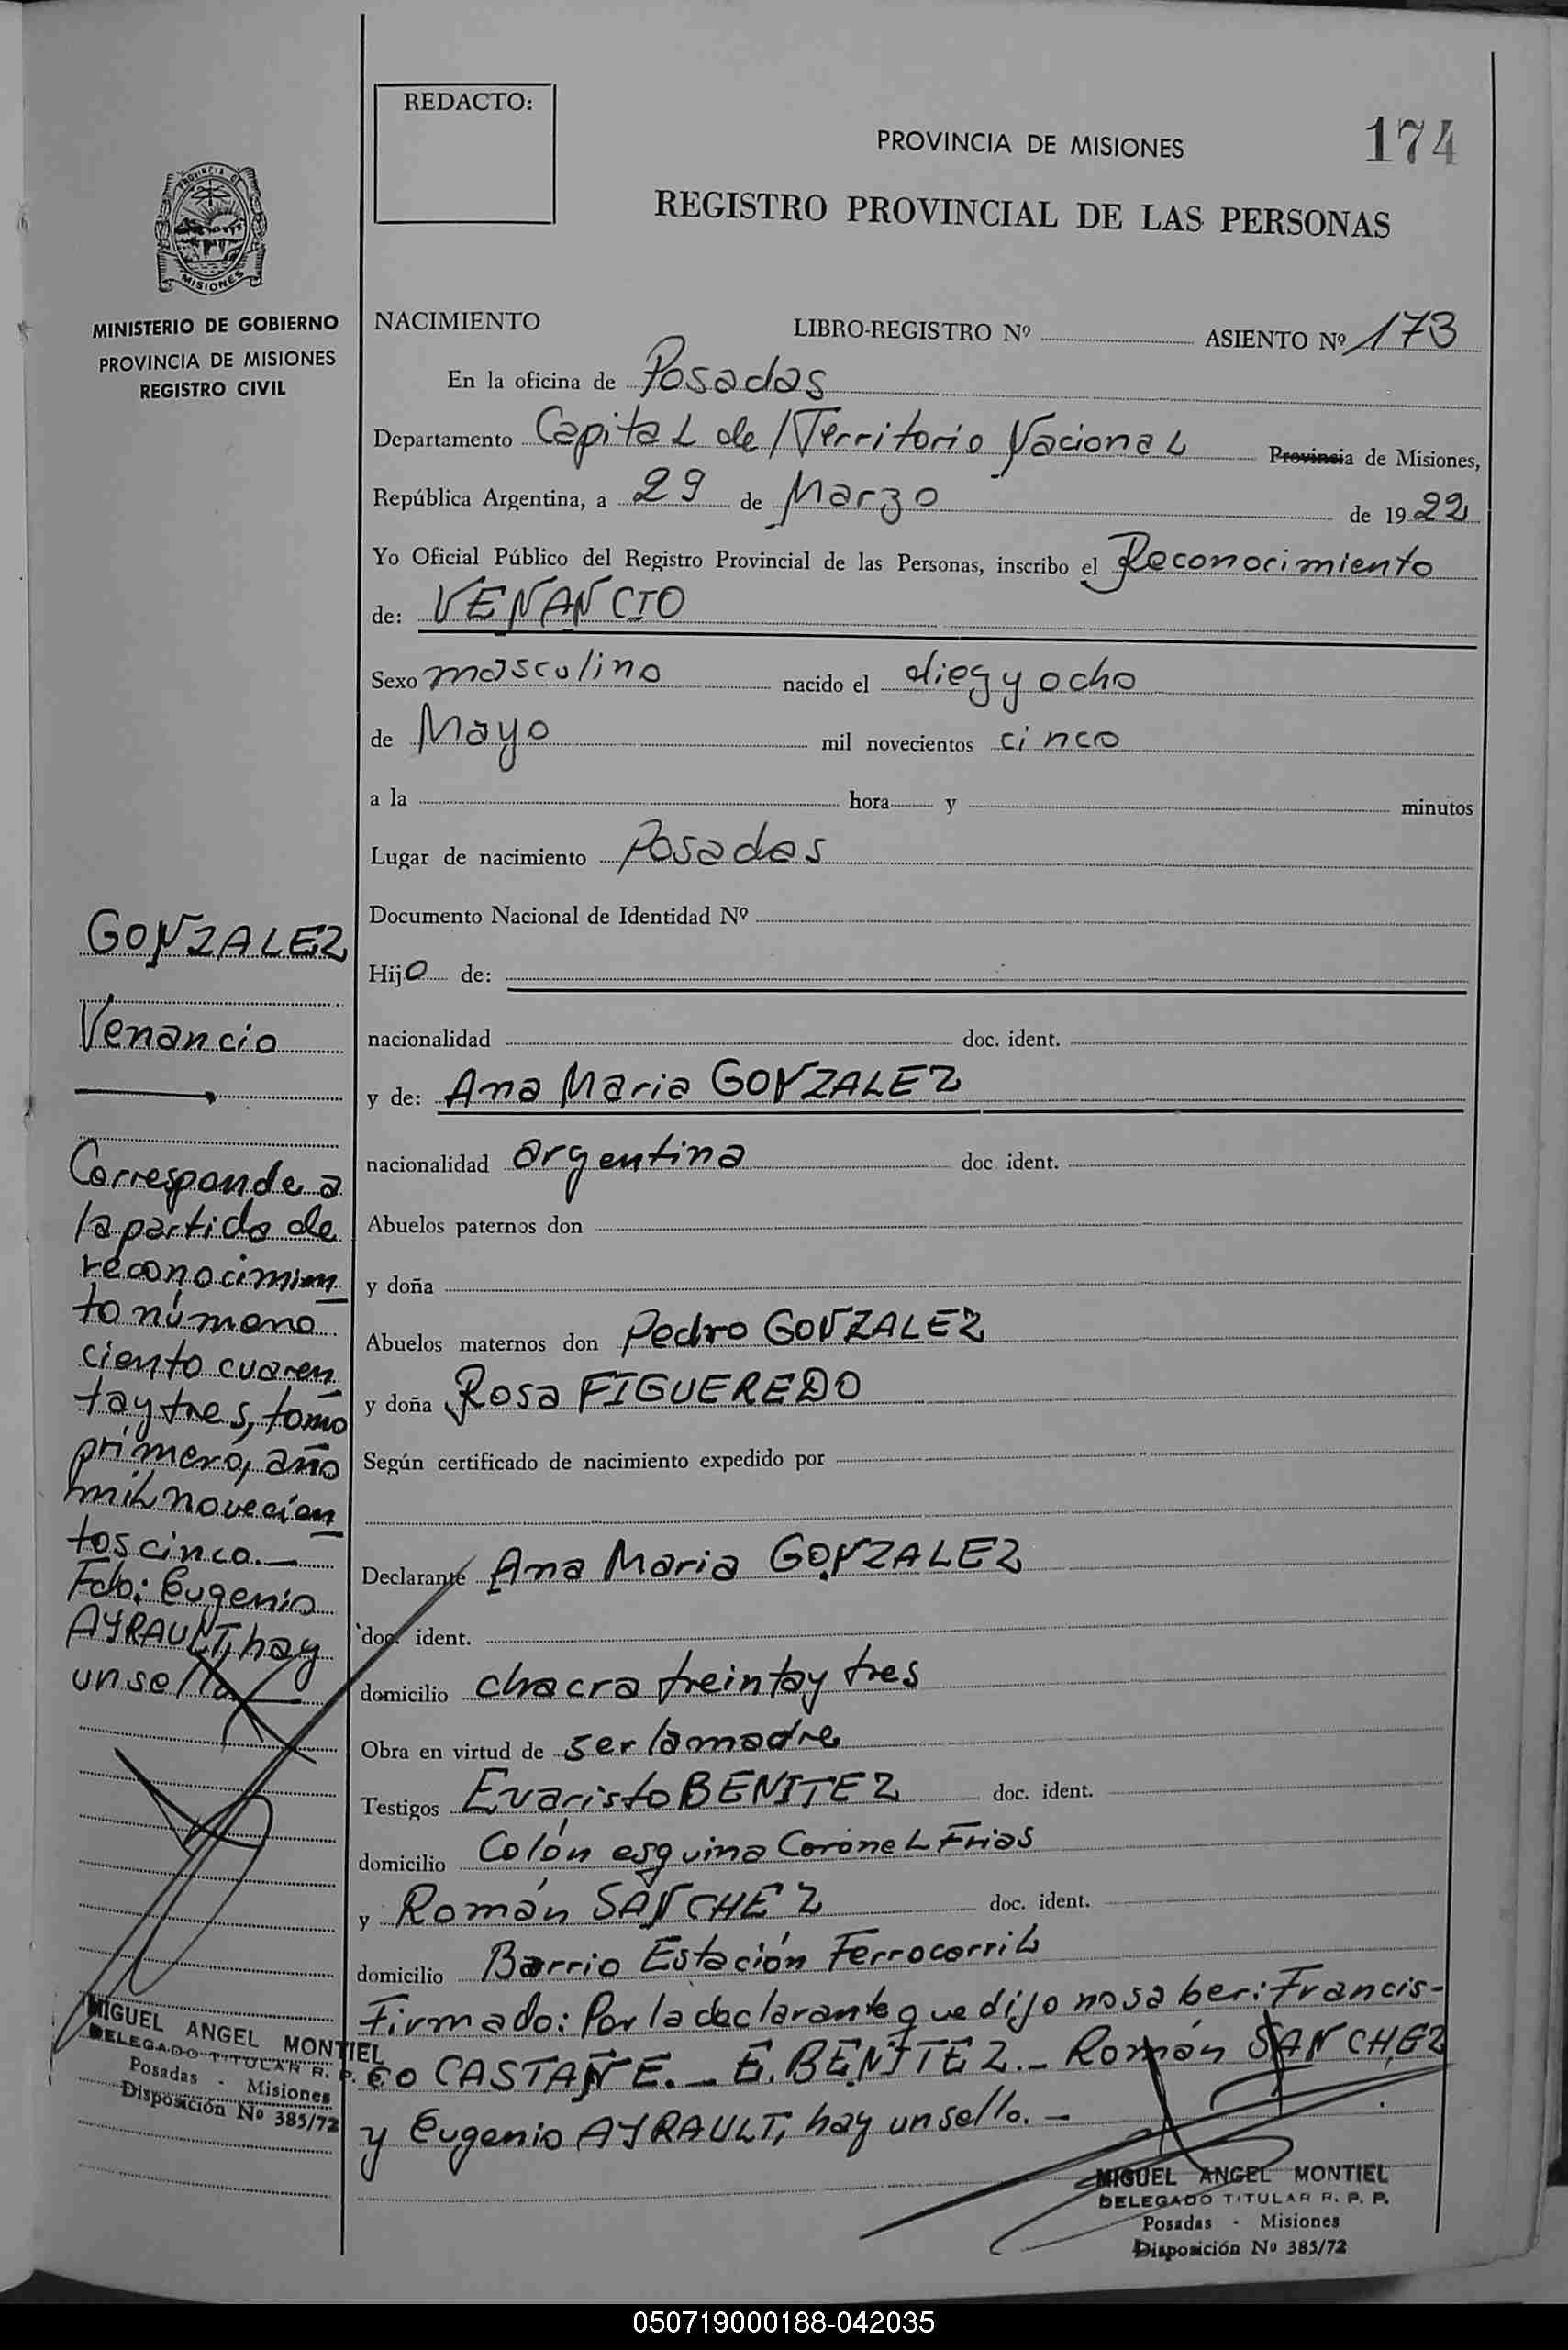 REDACTO:
PROVINCIA DE MISIONES
174
REGISTRO PROVINCIAL DE LAS PERSONAS
PROVINCIA DE
MISIONES
MINISTERIO DE GOBIERNO
PROVINCIA DE MISIONES
REGISTRO CIVIL
NACIMIENTO LIBRO-REGISTRO Nº ASIENTO Nº 173
En la oficina de Posadas
Departamento Capital del Territorio Nacional Provincia de Misiones,
República Argentina, a 29 de Marzo de 1922
Yo Oficial Público del Registro Provincial de las Personas, inscribo el Reconocimiento
de: VENANCIO
Sexo masculino nacido el diez y ocho
de Mayo mil novecientos cinco
a la hora y minutos
Lugar de nacimiento Posadas
Documento Nacional de Identidad Nº
Hijo de:
nacionalidad doc. ident.
y de: Ana Maria GONZALEZ
nacionalidad argentina doc ident.
Abuelos paternos don
y doña
Abuelos maternos don Pedro GONZALEZ
y doña Rosa FIGUEREDO
Según certificado de nacimiento expedido por
Declarante Ana Maria GONZALEZ
doc. ident.
domicilio chacra treinta y tres
Obra en virtud de ser la madre
Testigos Evaristo BENITEZ doc. ident.
domicilio Colón esquina Coronel Frias
y Román SANCHEZ doc. ident.
domicilio Barrio Estación Ferrocarril
Firmado: Por la declarante que dijo no saber: Francis-
co CASTAÑE. - E. BENITEZ. - Román SANCHEZ
y Eugenio AYRAULT, hay un sello. -
MIGUEL ANGEL MONTIEL
DELEGADO TITULAR R. P. P.
Posadas - Misiones
Disposición Nº 385/72
GONZALEZ
Venancio
Corresponde a
la partida de
reconocimien
to número
ciento cuaren
ta y tres, tomo
primero, año
mil novecien
tos cinco. -
Fdo: Eugenio
AYRAULT, hay
un sello
MIGUEL ANGEL MONTIEL
DELEGADO TITULAR R. P. P.
Posadas - Misiones
Disposición Nº 385/72
050719000188-042035